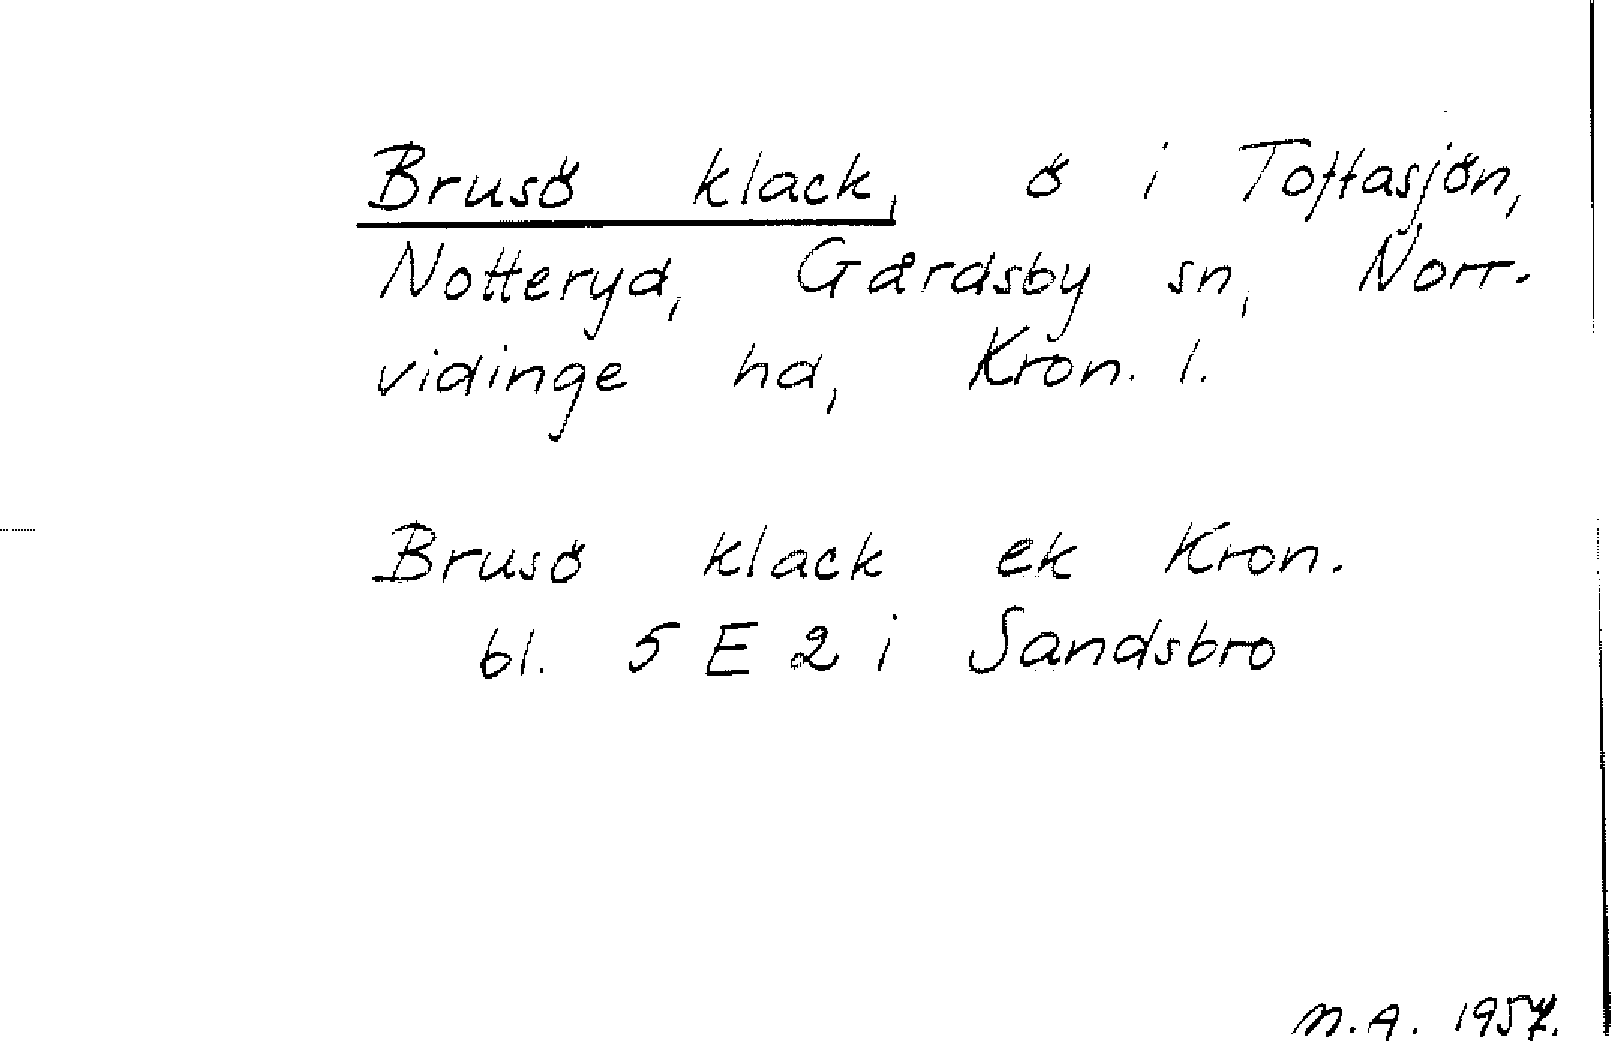 Brusö klack, ö i Toftasjön,
Notteryd, Gårdsby sn, Norr-
vidinge hd, Kron. l.
Brusö klack ek Kron.
bl. 5 E 2 i Sandsbro
N.A. 1957.